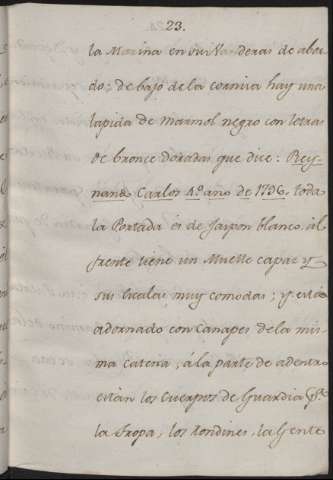 23.
la Marina en sus Vanderas de abor
do; de bajo de la corniza hay una
lapida de Marmol negro con letras
de bronce doradas que dice: Rey-
nando Carlos 4.º ano de 1796. toda
la Portada es de Jaspon blanco, al
frente tiene un Muelle capaz y
sus Escalas muy comodas; y està
adornado con Canapes de la mis
ma cateria; á la parte de adentro
están los Cuerpos de Guardia p.ª
la Tropa, los rondines, la Gente